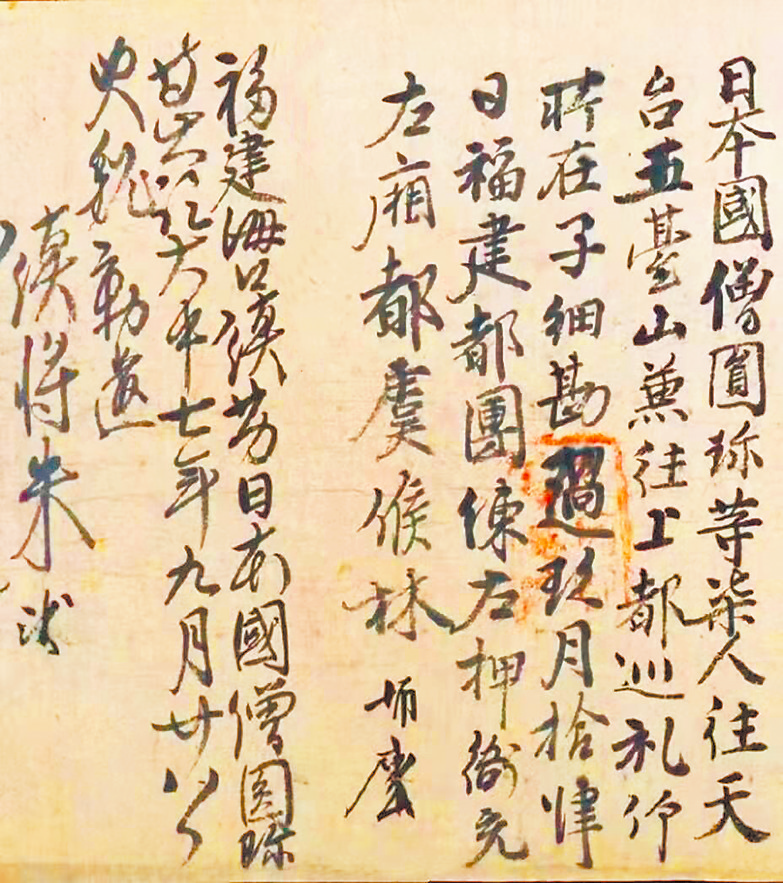 日本國僧圓珎等柒人往天
台五臺山兼往上都巡礼仰
所在子細勘過玖月拾肆
日福建都團練左押衙充
左廂都虞候林師翼
福建海口鎮勘日本國僧圓珎
等出訖大中七年九月廿八日
史魏勤過
鎮將朱